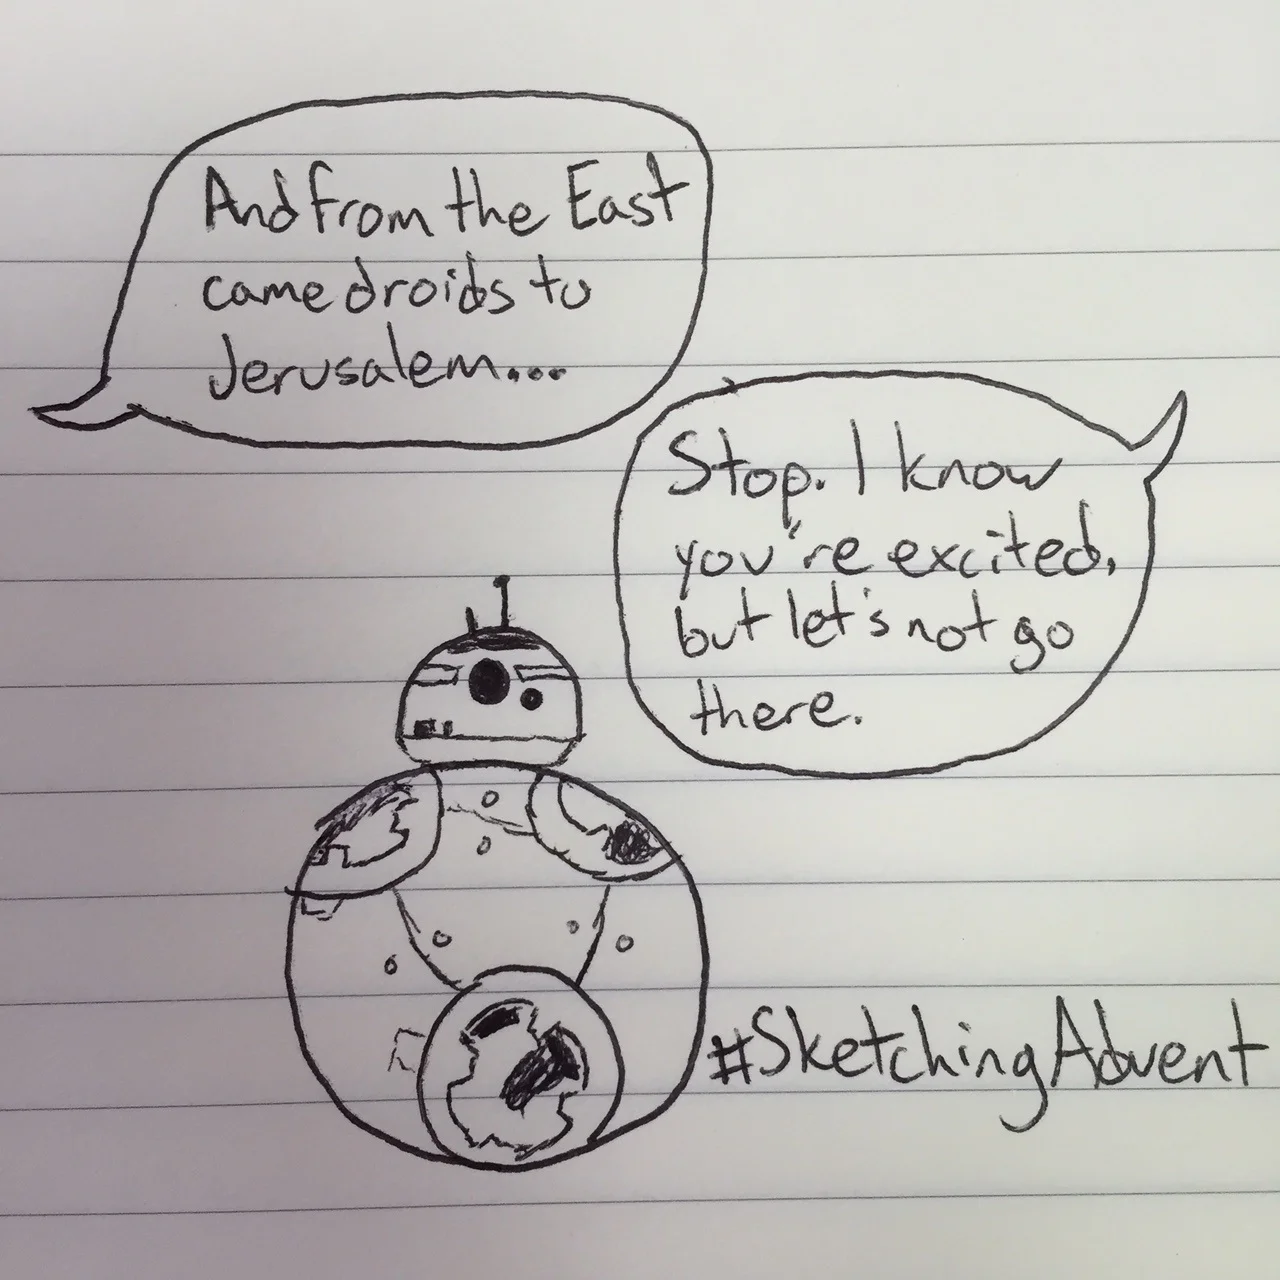 And from the East
came droids to
Jerusalem...
Stop. I know
you're excited,
but let's not go
there.
#SketchingAdvent